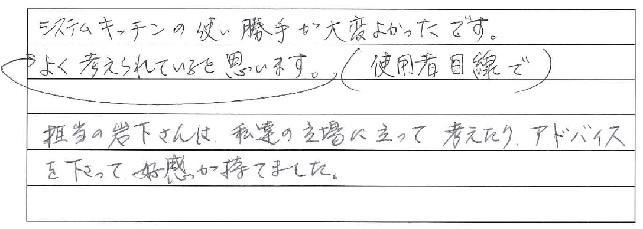 システムキッチンの使い勝手が大変よかったです。
よく考えられていると思います。(使用者目線で)
担当の岩下さんは、私達の立場に立って考えたり、アドバイス
を下さって好感が持てました。